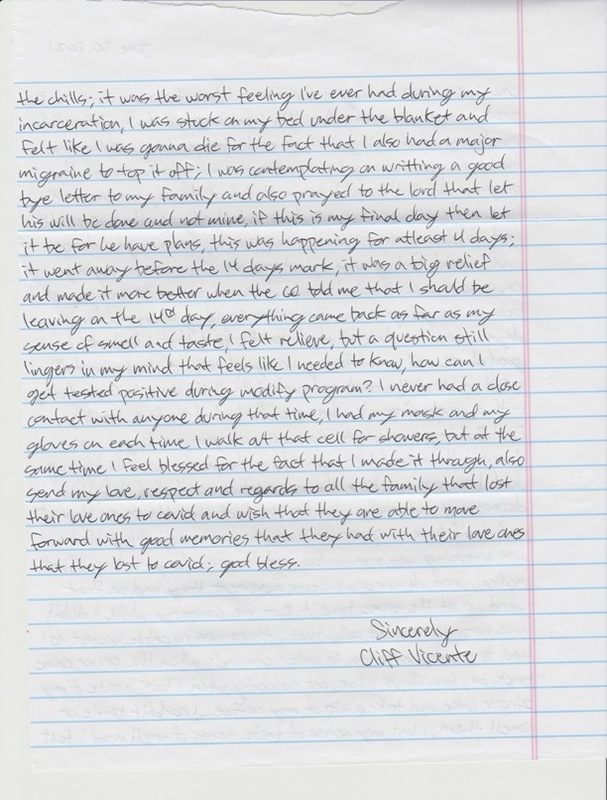 the chills; it was the worst feeling I've ever had during my
incarceration, I was stuck on my bed under the blanket and
felt like I was gonna die for the fact that I also had a major
migraine to top it off; I was contemplating on writting a good
bye letter to my family and also prayed to the lord that let
his will be done and not mine, if this is my final day then let
it be for he have plans, this was happening for atleast 4 days;
it went away before the 14 days mark, it was a big relief
and made it more better when the CO told me that I should be
leaving on the 14th day, everything came back as far as my
sense of smell and taste, I felt relieve, but a question still
lingers in my mind that feels like I needed to know, how can I
get tested positive during modify program? I never had a close
contact with anyone during that time, I had my mask and my
gloves on each time I walk out that cell for showers, but at the
same time I feel blessed for the fact that I made it through, also
send my love, respect and regards to all the family that lost
their love ones to covid and wish that they are able to move
forward with good memories that they had with their love ones
that they lost to covid; god bless.
Sincerely
Cliff Vicente